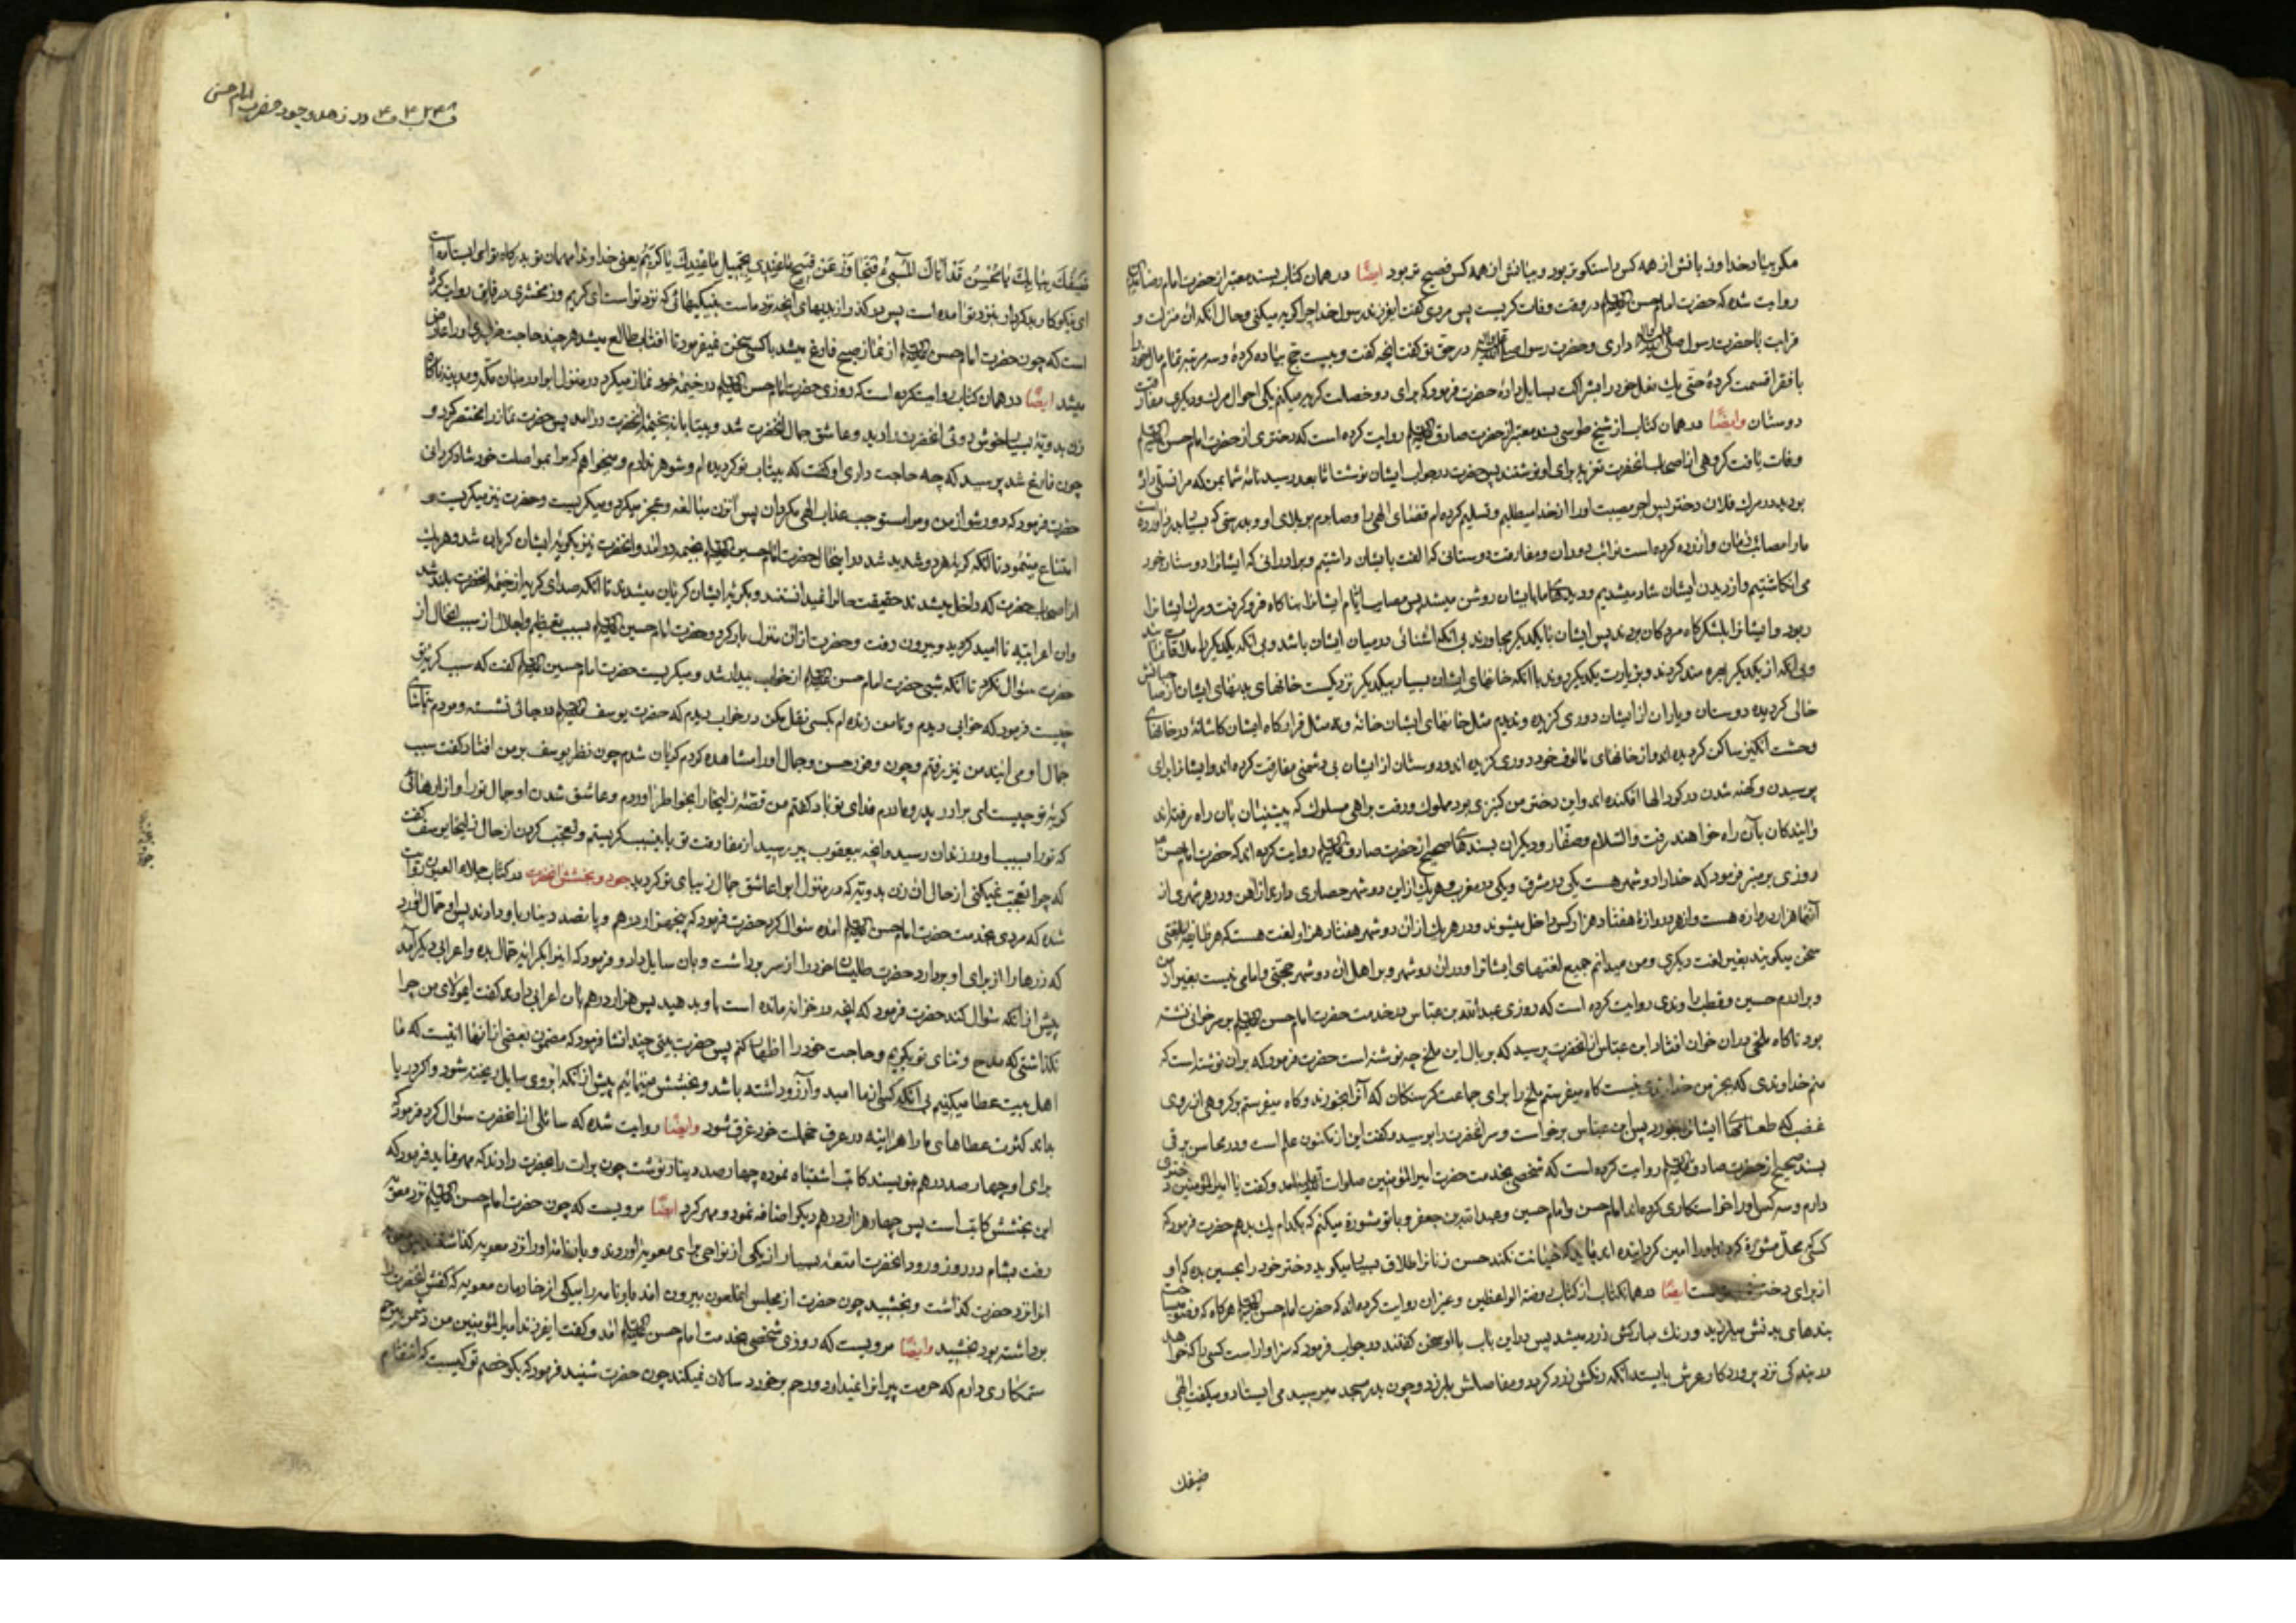 مکر بیاد خدا و زبانش از همه کس راستکوتر بود و بیانش از همه کس فصیح تر بود ایضًا در همان کتاب بسند معتبر از حضرت امام رضا
روایت شده که حضرت امام حسن در وقت وفات کریست پس مردی کفت ایفرزند رسول خدا چرا کریه میکنی و حال آنکه ان منزلت و
قرابت با حضرت رسول داری و حضرت رسول در حق تو کفت انچه کفت و بیست حج پیاده کردهٔ و سه مرتبه تمام مال خود را
با فقرا قسمت کردهٔ حتی یك نعل خود را بسایل دادهٔ حضرت فرمود که برای دو خصلت کریه میکنم یکی احوال مردن و دیکری مفارقت
دوستان وایضًا در همان کتاب از شیخ طوسی بسند معتبر از حضرت صادق روایت کرده است که دختری از حضرت امام حسن
وفات یافت کروهی از اصحاب انحضرت تعزیه برای او نوشتند پس حضرت در جواب ایشان نوشت اما بعد رسید نامهٔ شما بمن که مرا تسلی داده
بودید در مرك فلان دختر پس اجر مصیبت او را از خدا میطلبم و تسلیم کرده ام قضای الهی را و صابرم بر بلای او
مارا مصائب زمان و ازرده کرده است نوائب دوران و مفارقت دوستانی که الفت بایشان داشتیم و برادرانی که ایشانرا دوستان خود
می انکاشتیم و از دیدن ایشان شاد میشدیم و دیدهای ما بایشان روشن میشد پس مصایب ایام ایشانرا بناکاه فرو کرفت و مرك ایشانرا
ربود و ایشانرا بلشکرکاه مردکان بردند پس ایشان با یکدیکر مجاورند بی انکه اشنائی در میان ایشان باشد و بی انکه یکدیکر را ملاقات نمایند
و بی انکه از یکدیکر بهره مند کردند و بزیارت یکدیکر روند با انکه خانهای ایشان بسیار بیکدیکر نزدیکست خانهای بدنهای ایشان از صاحبانش
خالی کردیده دوستان و یاران از ایشان دوری کزیده و ندیدم مثل خانهای ایشان خانهٔ و نه مثل قرارکاه ایشان کاشانهٔ در خانهای
وحشت انکیز ساکن کردیده اند و از خانهای مالوف خود دوری کزیده اند و دوستان از ایشان بی دشمنی مفارقت کرده اند و ایشانرا برای
پوسیدن و کهنه شدن در کودالها افکنده اند و این دختر من کنیزی بود مملوك و رفت براهی مسلوك که پیشینیان بان راه رفته اند
و ایندکان بآن راه خواهند رفت والسلام و صفار و دیکران بسندهای صحیح از حضرت صادق روایت کرده اند که حضرت امام حسن
روزی بر منبر فرمود که خدا را دو شهر هست یکی در مشرق و یکی در مغرب و هر یك از این دو شهر حصاری دارد از اهن و در هر شهری از
آنها هزار دروازه هست و از هر دروازهٔ هفتاد هزار کس داخل میشوند و در هر یك از ان دو شهر هفتاد هزار لغت هست که هر طایفه بلغتی
سخن میکویند بغیر لغت دیکری و من میدانم جمیع لغتهای ایشانرا و در ان دو شهر و بر اهل ان دو شهر حجتی و امامی نیست بغیر از من
و برادرم حسین و قطب راوندی روایت کرده است که روزی عبدالله بن عباس در خدمت حضرت امام حسن بر سر خوانی نشسته
بود ناکاه ملخی بر ان خوان افتاد ابن عباس از انحضرت پرسید که بر بال این ملخ چه نوشته است حضرت فرمود که بر ان نوشته است که
منم خداوندی که بجز من خداوندی نیست کاه میفرستم ملخ را برای جماعت کرسنکان که آنرا بخورند و کاه میفرستم بر کروهی از روی
غضب که طعامهای ایشانرا بخورد پس ابن عباس برخواست و سر انحضرت را بوسید و کفت این از مکنون علم است و در محاسن برقی
بسند صحیح از حضرت صادق روایت کرده است که شخصی بخدمت حضرت امیرالمؤمنین صلوات الله علیه آمد و کفت یا امیرالمؤمنین دختری
دارم و سه کس او را خواستکاری کرده اند امام حسن و امام حسین و عبدالله بن جعفر و با تو مشورة میکنم که بکدام یك بدهم حضرت فرمود که
کسی که محل مشورة امین کردانیده اند باید که خیانت نکند حسن زنانرا طلاق بسیار میکوید دختر خود را بحسین بده که او
از برای دختر ایضًا در همان کتاب از کتاب روضة الواعظین و غیران روایت کرده اند که حضرت امام حسن هرکاه که وضو میساخت
بندهای بدنش میلرزید و رنك مبارکش زرد میشد پس در این باب باو سخن کفتند در جواب فرمود که سزاوار است کسی را که خواهد
در بندکی نزد پروردکار عرش بایستد انکه رنکش زرد کردد و مفاصلش بلرزد و چون بدر مسجد میرسید می ایستاد و میکفت الهی
ضیفك
در زهد و جود حضرت امام حسن
ضَیْفُكَ بِبَابِكَ یَا مُحْسِنُ قَدْ اَتَاكَ الْمُسِیٓءُ فَتَجَاوَزْ عَنْ قَبِیحِ مَا عِنْدِی بِجَمِیلِ مَا عِنْدَكَ یَا کَرِیمُ یعنی خداوندا مهمان تو بدرکاه تو ایستاده است
ای نیکوکار بدکردار بنزد تو امده است پس درکذر از بدیهای آنچه نزد ماست بنیکیهائی که نزد تو است ای کریم و زمخشری در فایق روایت کرده
است که چون حضرت امام حسن از نماز صبح فارغ میشد با کسی سخن نمیفرمود تا افتاب طالع میشد هرچند حاجت ضروری او را عارض
میشد ایضًا در همان کتاب روایت کرده است که روزی حضرت امام حسن در خیمهٔ خود نماز میکرد در منزل ابوا در میان مکه و مدینه ناکاه
زن بدویهٔ بسیار خوش روئی انحضرت را دید و عاشق جمال انحضرت شد و بیتابانه بخیمهٔ انحضرت درآمد پس حضرت نماز را مختصر کرد و
چون فارغ شد پرسید که چه حاجت داری او کفت که بیتاب تو کردیده ام و شوهر ندارم و میخواهم که مرا بمواصلت خود شاد کردانی
حضرت فرمود که دور شو از من و مرا مستوجب عذاب الهی مکردان پس آنزن مبالغه و عجز میکرد و میکریست و حضرت نیز میکریست و
امتناع مینمود تا انکه کریهٔ هر دو شدید شد در اینحال حضرت امام حسین بخیمه درامد و انحضرت نیز بکریهٔ ایشان کریان شد و هر یك
از اصحاب حضرت که داخل میشدند حقیقت حال را نمیدانستند و بکریهٔ ایشان کریان میشدند تا انکه صدای کریه از خیمهٔ انحضرت بلند شد
وان اعرابیه نا امید کردید و بیرون رفت و حضرت از ان منزل بار کرد و حضرت امام حسین بسبب تعظیم و اجلال از سبب انحال از
حضرت سؤال نکرد تا انکه شبی حضرت امام حسن از خواب بیدار شد و میکریست حضرت امام حسین کفت که سبب کریهٔ تو
چیست فرمود که خوابی دیدم و تا من زنده ام بکسی نقل مکن در خواب دیدم که حضرت یوسف در جائی نشسته و مردم تماشای
جمال او می ایند من نیز رفتم و چون وفور حسن و جمال او را مشاهده کردم کریان شدم چون نظر یوسف بر من افتاد کفت سبب
کریهٔ تو چیست ای برادر پدر و مادرم فدای تو باد کفتم من قصهٔ زلیخا را بخواطر اوردم و عاشق شدن او جمال تو را و ازارهائی
که تو را بسبب او در زندان رسید و انچه بیعقوب پیر رسید از مفارقت تو باینسبب کریستم و تعجب کردم از حال زلیخا یوسف کفت
که چرا تعجب نمیکنی از حال ان زن بدویه که در منزل ابوا عاشق جمال زیبای تو کردید جود و بخشش انحضرت در کتاب جلاء العیون روایت
شده که مردی بخدمت حضرت امام حسن امده سؤال کرد حضرت فرمود که پنجهزار درهم و پانصد دینار باو دادند پس او حمال آورد
که زرها را از برای او بردارد حضرت طیلسان خود را از سر برداشت و بان سایل داد و فرمود که اینرا بکرایه حمال بده و اعرابی دیکر آمد
پیش از انکه سؤال کند حضرت فرمود که انچه در خزانه مانده است باو بدهید پس هزار درهم بان اعرابی دادند کفت ایمولای من چرا
نکذاشتی که مدح و ثنای تو بکویم و حاجت خود را اظهار کنم پس حضرت بیتی چند انشا فرمود که مضمون بعضی از انها انیست که ما
اهل بیت عطا میکنیم بی انکه کسی از ما امید و آرزو داشته باشد و بخشش مینمائیم پیش از انکه ابروی سایل ریخته شود و اکر دریا
بداند کثرت عطاهای ما را هر اینه در عرق خجلت خود غرق شود وایضًا روایت شده که سائلی از انحضرت سؤال کرد فرمود که
برای او چهارصد درهم بنویسند کاتب اشتباه نموده چهارصد دینار نوشت چون برات را بحضرت دادند که مهر نماید فرمود که
این بخشش کاتب است پس چهار هزار درهم دیکر اضافه نمود و مهر کرد ایضًا مرویست که چون حضرت امام حسن نزد معویه
رفت بشام در روز ورود انحضرت امتعهٔ بسیار از یکی از نواحی برای معویه اوردند و بارنامهٔ او را نزد معویه کذاشتند
انرا نزد حضرت کذاشت و بخشید چون حضرت از مجلس انملعون بیرون امد بارنامه را بیکی از خادمان معویه که کفش انحضرت را
برداشته بود بخشید وایضًا مرویست که روزی شخصی بخدمت امام حسن امد و کفت ایفرزند امیرالمؤمنین من دشمن بیرحم
ستمکاری دارم که حرمت پیرانرا نمیدارد و رحم بر خورد سالان نمیکند چون حضرت شنید فرمود که بکو خصم تو کیست که انتقام